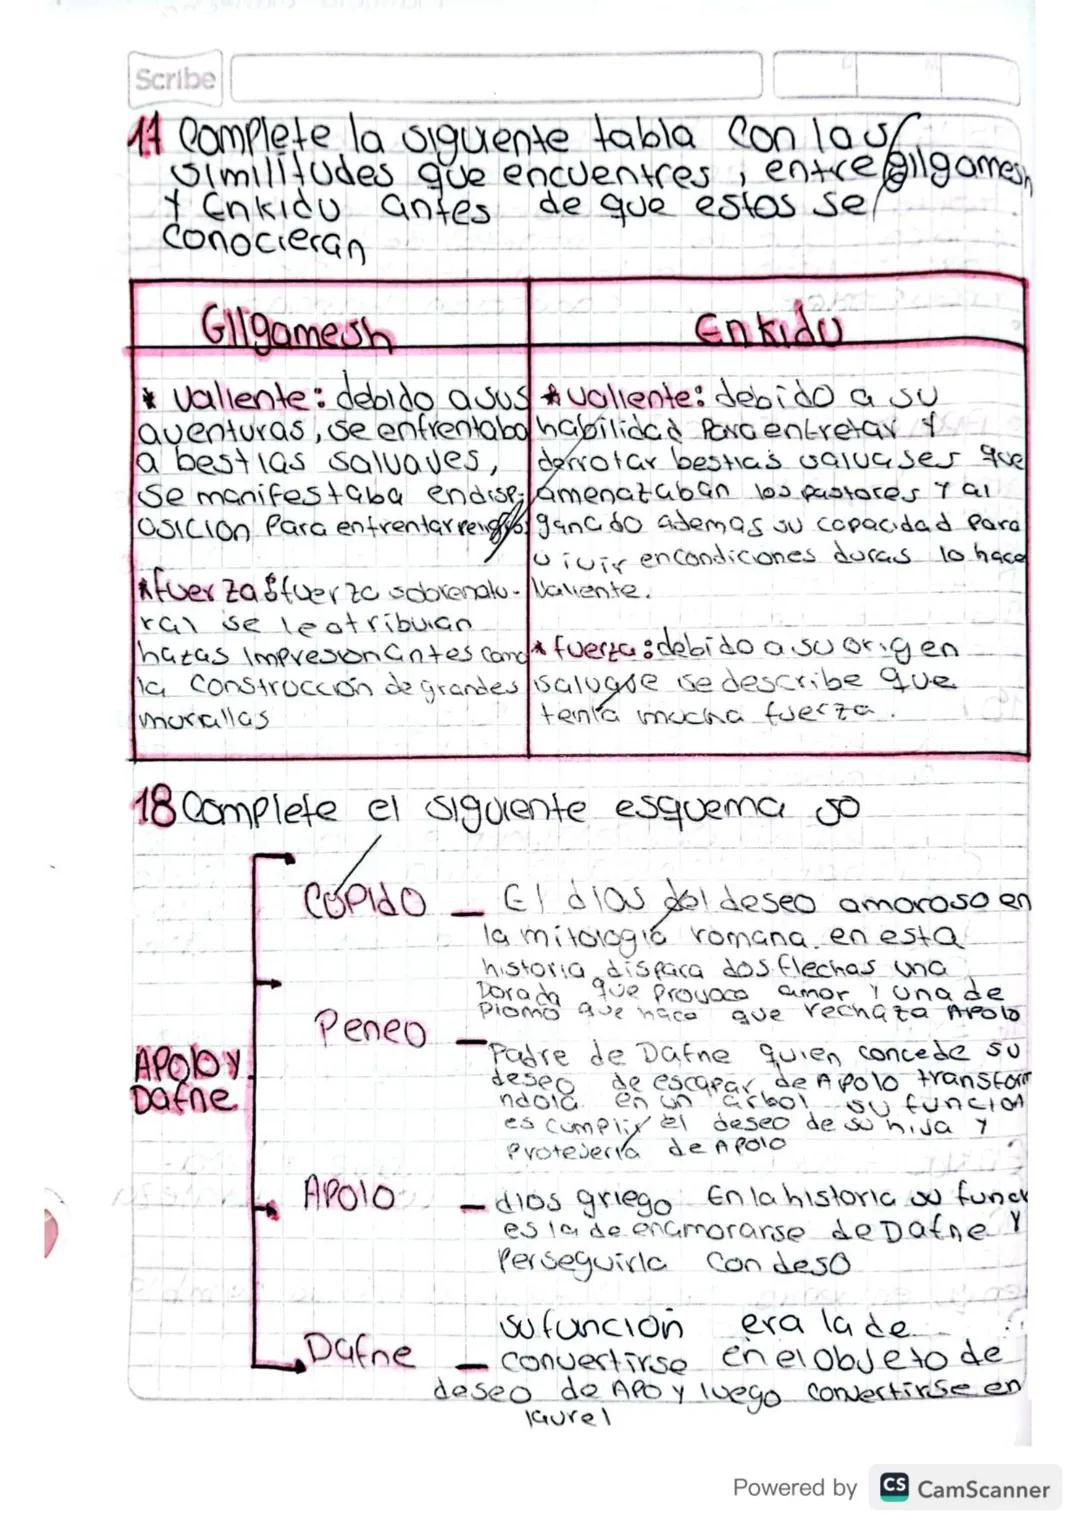 Scribe
17 Complete la siguiente tabla con las
similitudes que encuentres, entre gilgamesh
y Enkidu antes de que estos se
conocieran
Gilgamesh
* valiente: debido a sus
aventuras, se enfrentaba
a bestias salvaves,
se manifestaba en disp
osición para enfrentar
*fuerza: fuerza sobrenatu-
ral se le atribuian
hazas impresionantes como
la construcción de grandes
murallas
Enkidu
* valiente: debido a su
habilidad para entretar y
derrotar bestias salvases que
amenazaban los pastores y al
ganado ademas su capacidad para
vivir en condiciones duras lo hace
valiente.
* fuerza: debido a su origen
salvaje se describe que
tenía mucha fuerza.
18 Complete el siguiente esquema
Apolo y
Dafne
Cúpido – El dios del deseo amoroso en
la mitología romana. en esta
historia dispara dos flechas una
Dorada que provoca amor y una de
plomo que hace que rechaza Apolo
Peneo – Padre de Dafne quien concede su
deseo de escapar de Apolo transform
ndola en un arbol su función
es cumplir el deseo de su hija y
protejerla de Apolo
Apolo – dios griego En la historia su func
es la de enamorarse de Dafne y
Perseguirla con deso
Dafne – su función era la de
convertirse en el objeto de
deseo de Apo y luego convertirse en
laurel
Powered by CS CamScanner